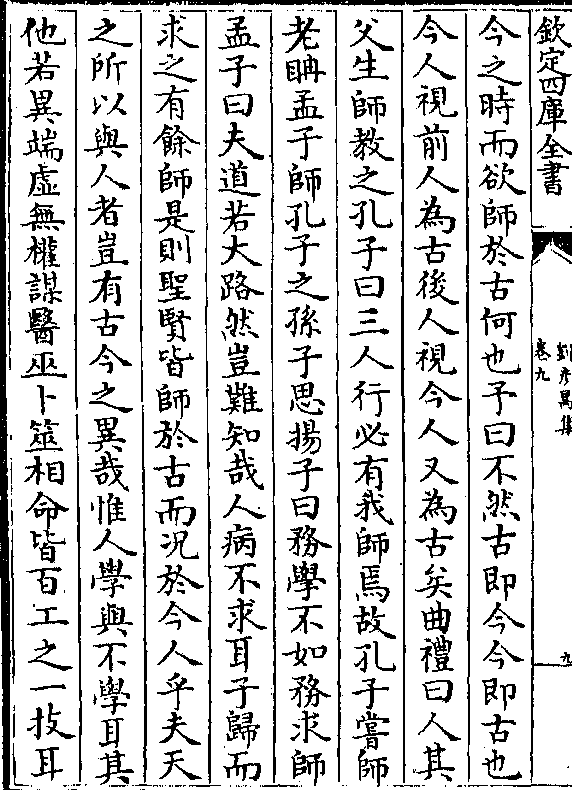 欽定四庫全書
劉彦昺集
卷九
九
今之時而欲師於古何也予曰不然古即今今即古也
今人視前人為古後人視今人又為古矣曲禮曰人其
父生師教之孔子曰三人行必有我師焉故孔子嘗師
老聃孟子師孔子之孫子思揚子曰務學不如務求師
孟子曰夫道若大路然豈難知哉人病不求耳子歸而
求之有餘師是則聖賢皆師於古而况於今人乎夫天
之所以與人者豈有古今之異哉惟人學與不學耳其
他若異端虛無權謀醫巫卜筮相命皆百工之一技耳